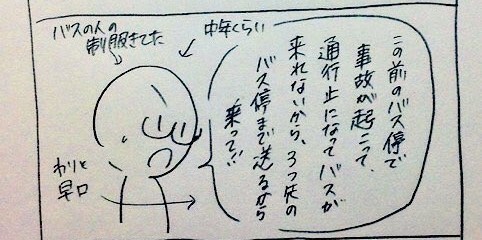 中年くらい
バスの人の
制服きてた
この前のバス停で
事故が起こって、
通行止になってバスが
来れないから、3つ先の
バス停まで送るから
乗って!!
わりと
早口